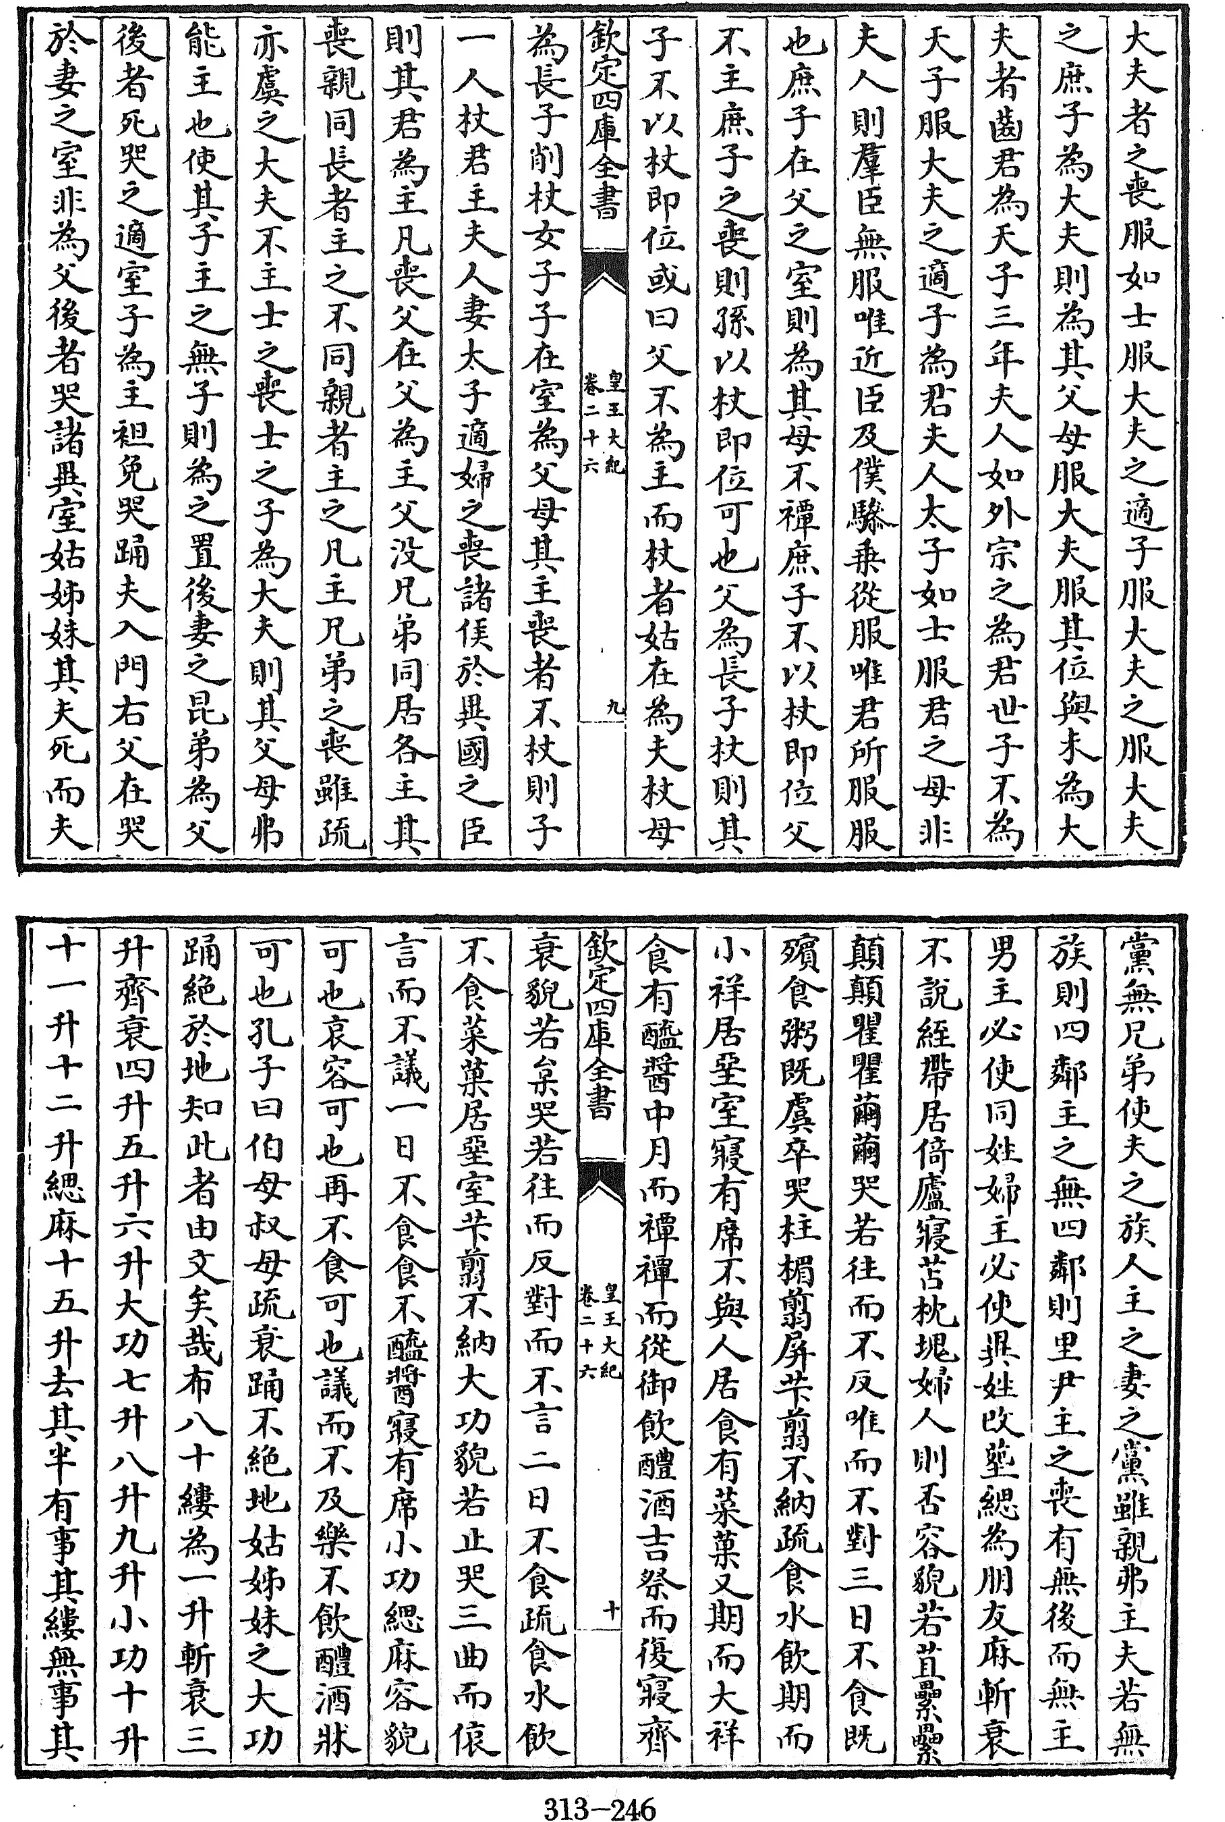 大夫者之喪服如士服大夫之適子服大夫之服大夫
之庶子為大夫則為其父母服大夫服其位與未為大
夫者齒君為天子三年夫人如外宗之為君世子不為
天子服大夫之適子為君夫人太子如士服君之母非
夫人則羣臣無服唯近臣及僕驂乗從服唯君所服服
也庶子在父之室則為其母不禫庶子不以杖即位父
不主庶子之喪則孫以杖即位可也父為長子杖則其
子不以杖即位或曰父不為主而杖者姑在為夫杖母
欽定四庫全書
皇王大紀
卷二十六
九
為長子削杖女子子在室為父母其主喪者不杖則子
一人杖君主夫人妻太子適婦之喪諸侯於異國之臣
則其君為主凡喪父在父為主父没兄弟同居各主其
喪親同長者主之不同親者主之凡主兄弟之喪雖疏
亦虞之大夫不主士之喪士之子為大夫則其父母弗
能主也使其子主之無子則為之置後妻之昆弟為父
後者死哭之適室子為主袒免哭踊夫入門右父在哭
於妻之室非為父後者哭諸異室姑姊妹其夫死而夫
黨無兄弟使夫之族人主之妻之黨雖親弗主夫若無
族則四鄰主之無四鄰則里尹主之喪有無後而無主
男主必使同姓婦主必使異姓改塟緦為朋友麻斬衰
不說絰帶居倚廬寢苫枕塊婦人則否容貌若苴纍纍
顛顛瞿瞿繭繭哭若往而不反唯而不對三日不食既
殯食粥既虞卒哭柱楣翦屏芐翦不納疏食水飲期而
小祥居堊室寢有席不與人居食有菜菓又期而大祥
食有醯醬中月而禫禫而從御飲醴酒吉祭而復寢齊
欽定四庫全書
皇王大紀
卷二十六
十
衰貌若枲哭若往而反對而不言二日不食疏食水飲
不食菜菓居堊室芐翦不納大功貌若止哭三曲而偯
言而不議一日不食食不醯醬寢有席小功緦麻容貌
可也哀容可也再不食可也議而不及樂不飲醴酒牀
可也孔子曰伯母叔母疏衰踊不絶地姑姊妹之大功
踊絶於地知此者由文矣哉布八十縷為一升斬衰三
升齊衰四升五升六升大功七升八升九升小功十升
十一升十二升緦麻十五升去其半有事其縷無事其
313-246